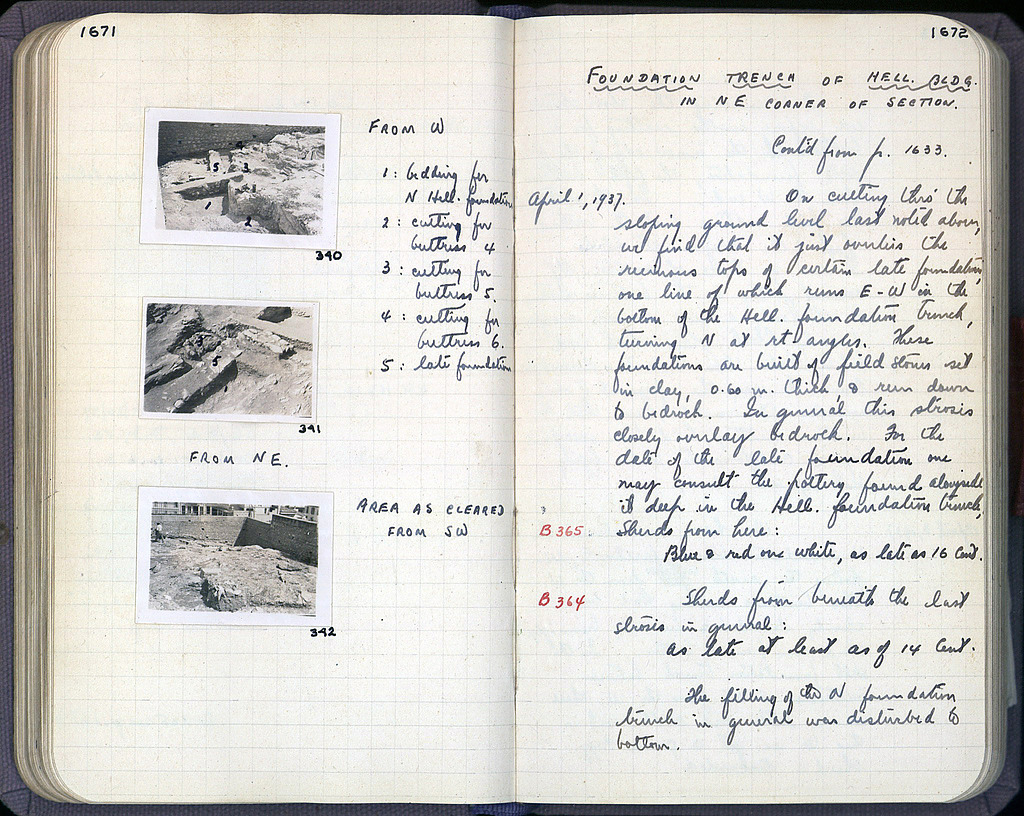 1671
FROM W
1 : bedding for
N Hell. foundation
2 : cutting for
buttress 4
3 : cutting for
buttress 5.
4 : cutting for
buttress 6.
5 : late foundation
340
341
FROM NE.
AREA AS CLEARED
FROM SW
342
1672
FOUNDATION TRENCH OF HELL. BLDG.
IN NE CORNER OF SECTION.
Cont'd from p. 1633.
April 1, 1937. On cutting thro the
sloping ground level last noted above,
we find that it just overlies the
ruinous tops of certain late foundations,
one line of which runs E-W in the
bottom of the Hell. foundation trench,
turning N at rt angles. These
foundations are built of field stones set
in clay, 0.60 m. thick & run down
to bedrock. In general this strosis
closely overlay bedrock. For the
date of the late foundation one
may consult the pottery found alongside
it deep in the Hell. foundation trench,
B 365 Sherds from here:
Blue & red one white, as late as 16 Cent.
B 364 Sherds from beneath the last
strosis in general :
as late at least as of 14 Cent.
The filling of the N foundation
trench in general was disturbed to
bottom.